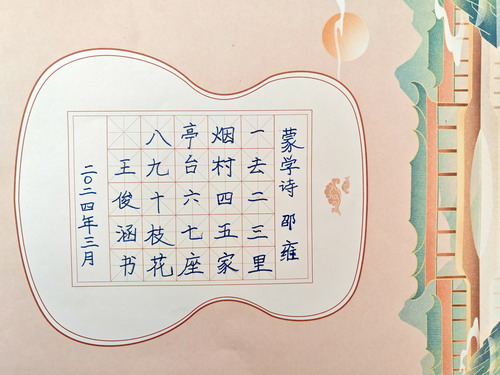 蒙学诗 邵雍
一去二三里
烟村四五家
亭台六七座
八九十枝花
王俊涵书
二〇二四年三月